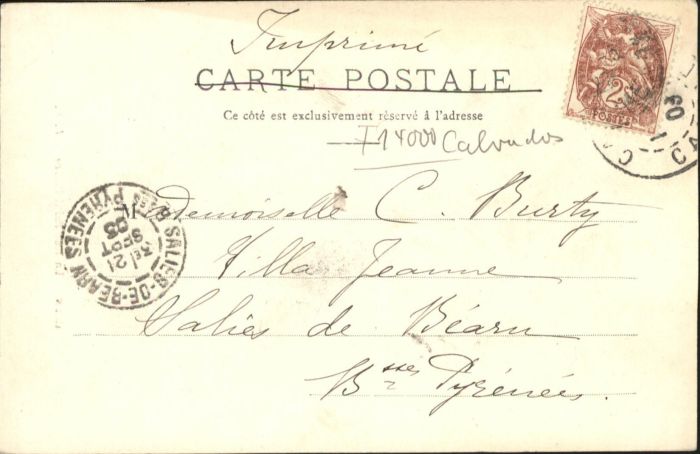 Imprimé
CARTE POSTALE
Ce côté est exclusivement réservé à l'adresse
14000 Calvados
2
POSTES
Mademoiselle C. Burty
Villa Jeanne
Salies de Béarn
Bsses Pyrénées.
SALIES-DE-BEARN
BSES PYRENEES
3E 21
SEPT
03
03
CA